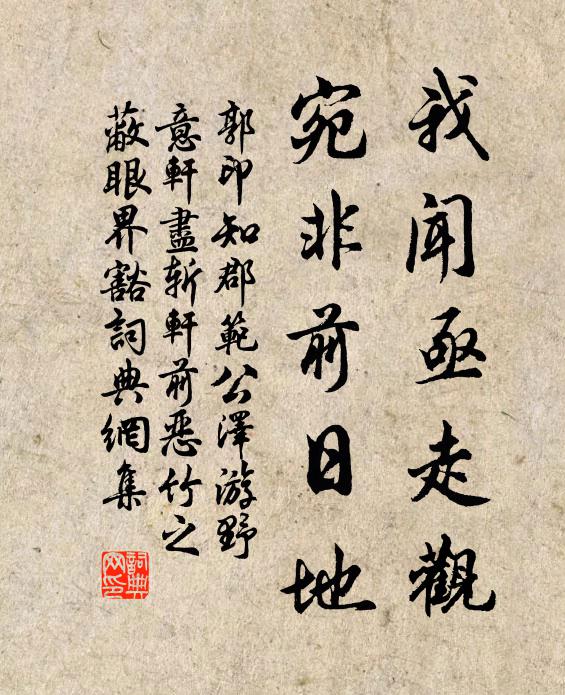 我聞亟走觀
宛非前日地
郭印知郡範公澤游野
意軒盡斬軒前惡竹之
蔽眼界豁詞典網集
詞典網印